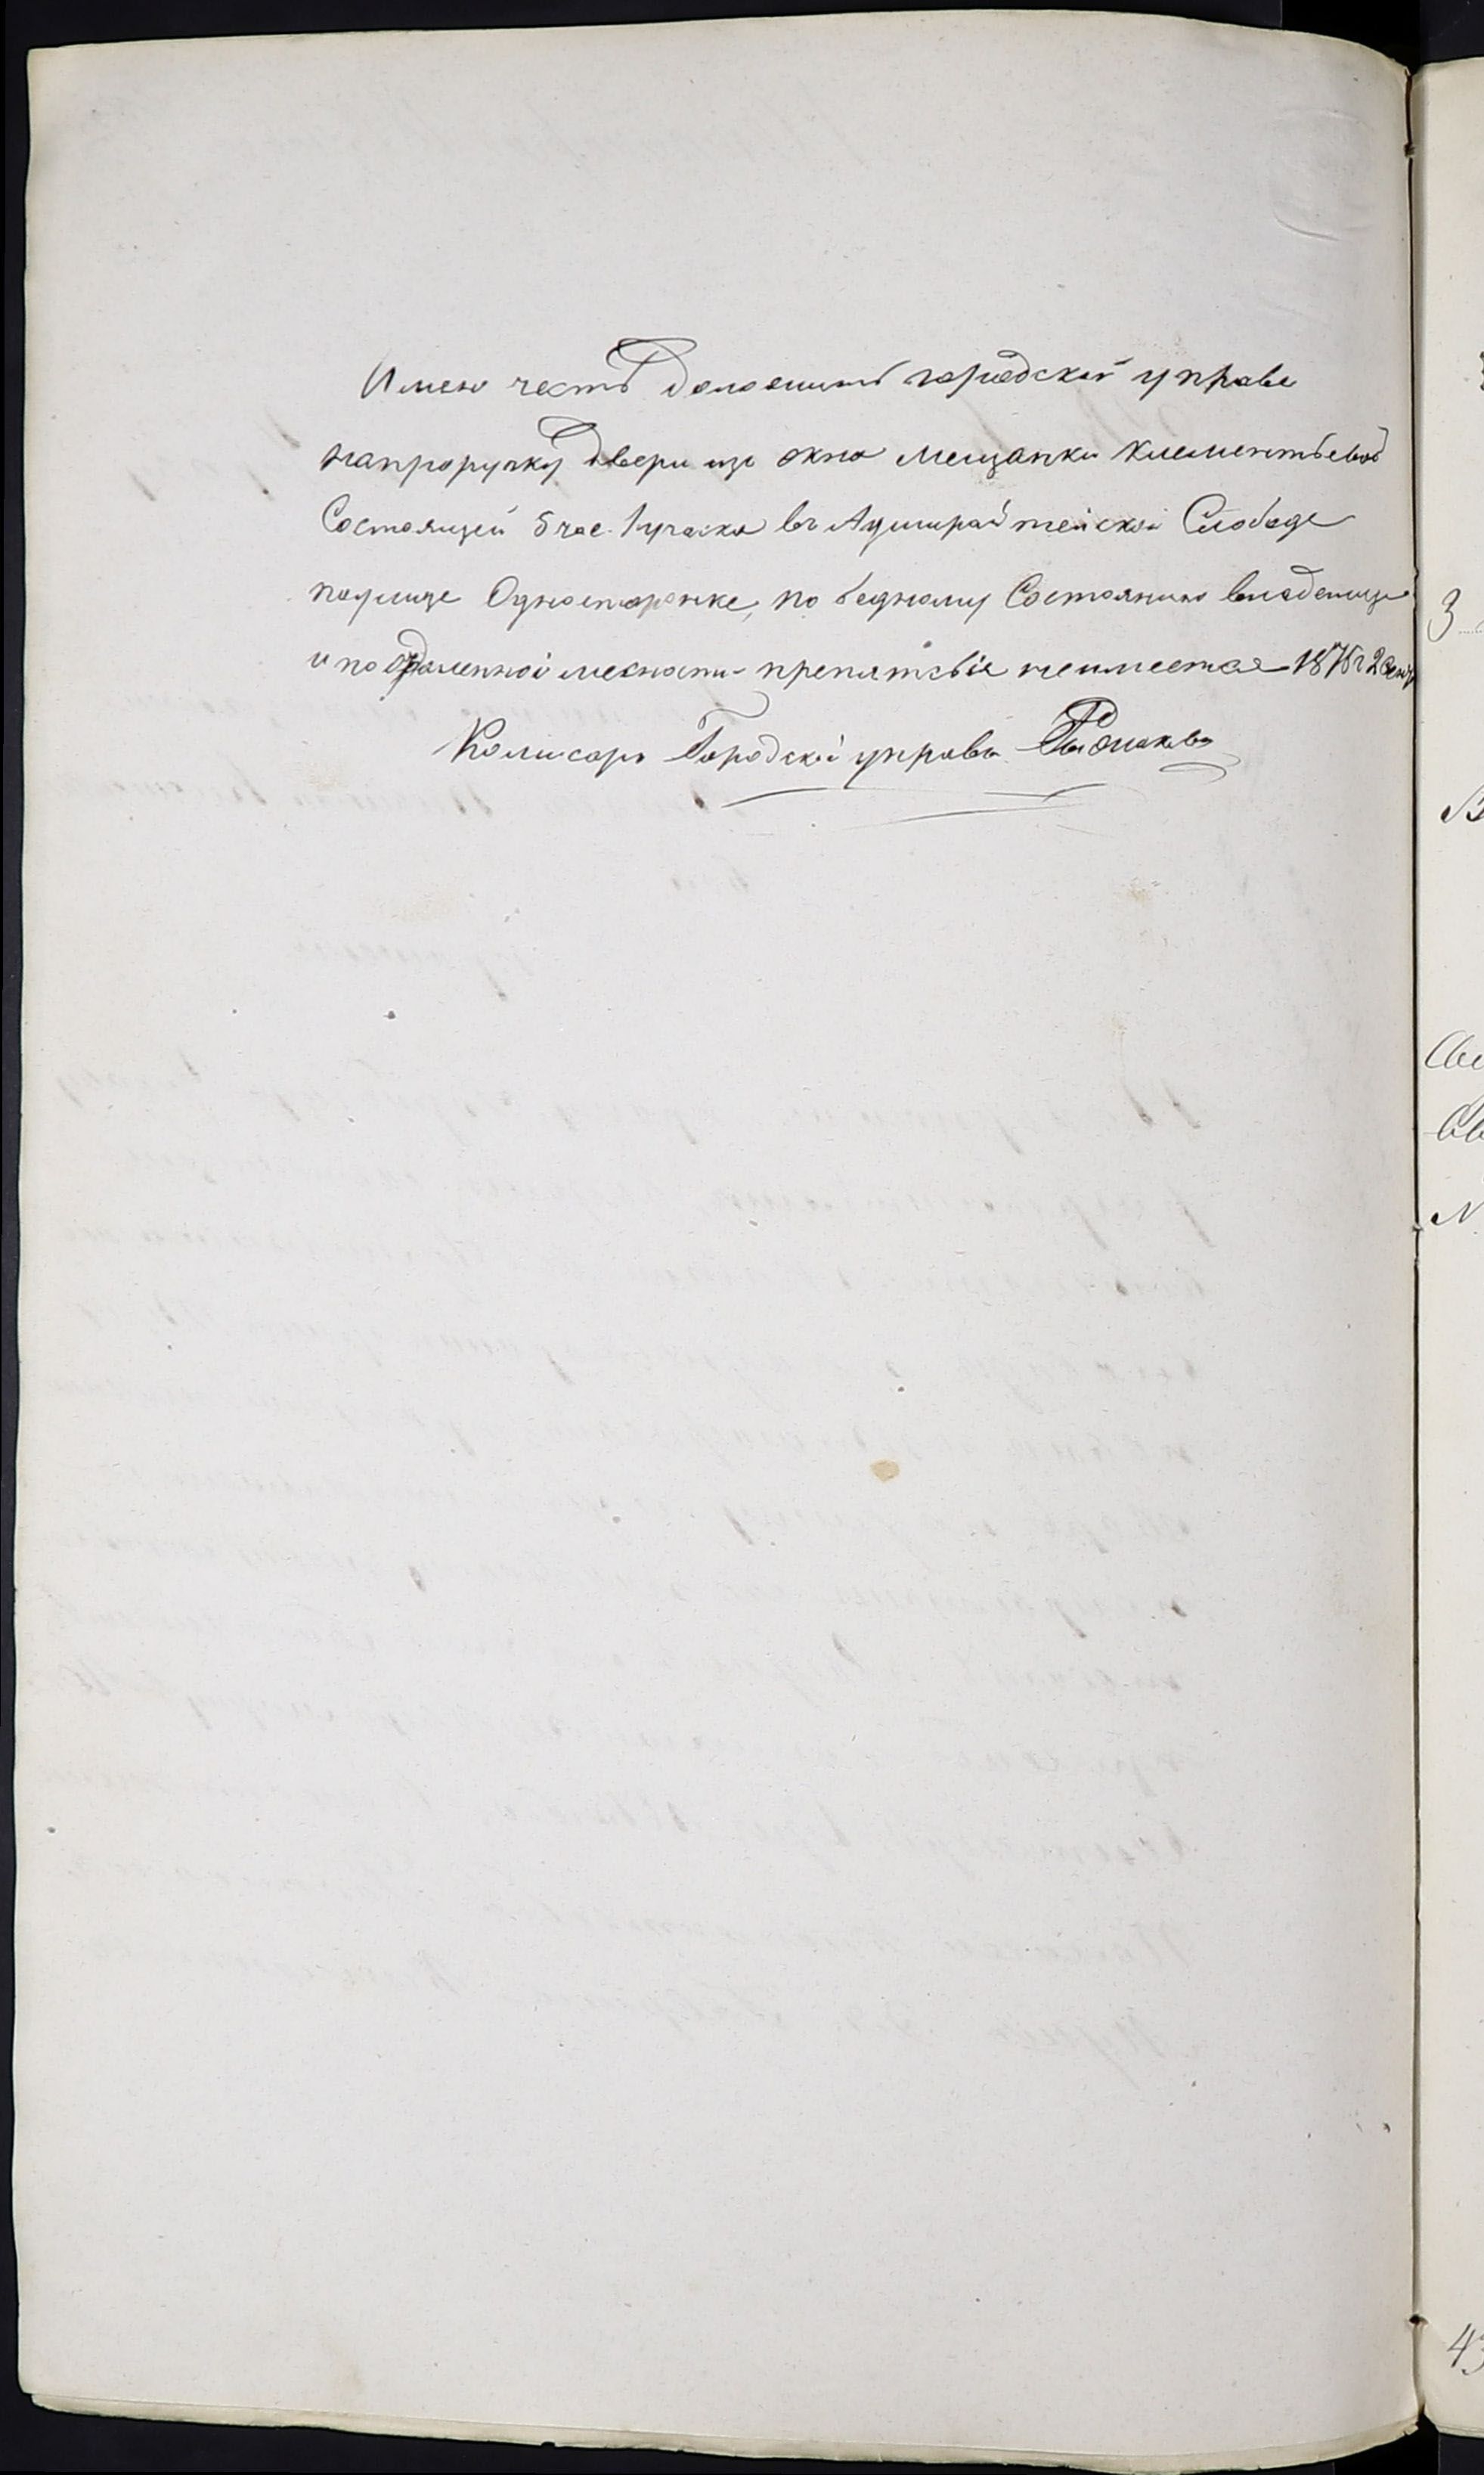 Имею честь доложить городской управе
напрорупку двери изъ окна мещанки клементьевой
Состоящей 5 час. 1 участка въ Адмиралтейской Слободе
поулице Односторонке, по бедному Состоянию владелице
и по отдаленной месности препятсвия неимеется 1876 г 2 Сент
Комисаръ Городской управы
3
В
Сви
Св
N
43